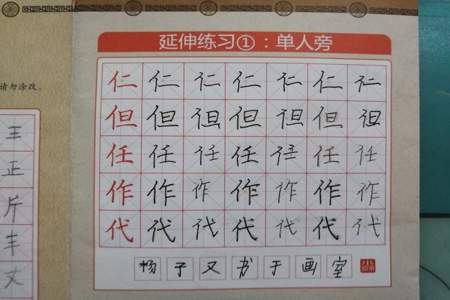 延伸练习①：单人旁
请勿涂改。
仁仁仁仁仁仁仁
但但但但但但但
任任任任任任任
作作作作作作作
代代代代代代代
杨子又书于画室
王
正
片
丰
丈